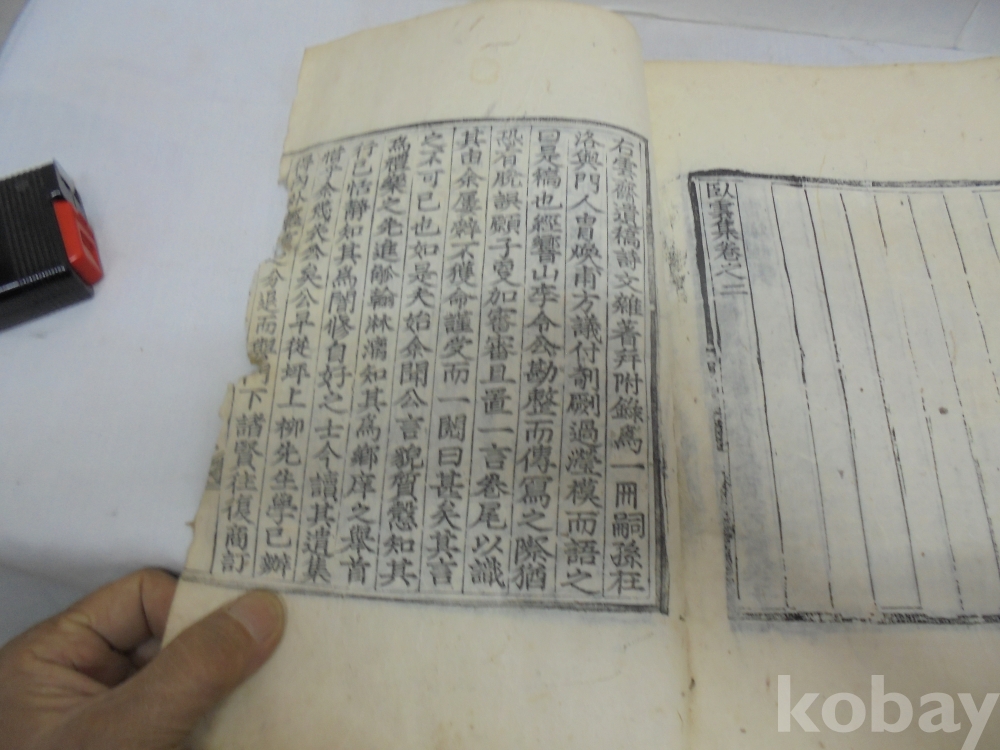 右雲齋遺稿詩文雜著幷附錄爲一冊嗣孫柱
洛與門人曺煥甫方議付剞劂過瀅模而語之
曰是稿也經響山李令公勘整而傳寫之際猶
恐有脫誤願子更加審審且置一言卷尾以識
其由余屢辭不獲命謹受而一閱曰甚矣其言
之不可已也如是夫始余聞公言貌質慤知其
爲禮樂之先進 翰淋漓知其爲鄕庠之擧首
行己恬靜知其爲闇修自好之士今讀其遺集
矣公早從坪上柳先生學已辦
分退而與 門下諸賢往復商訂
臥雲集卷之二
kobay